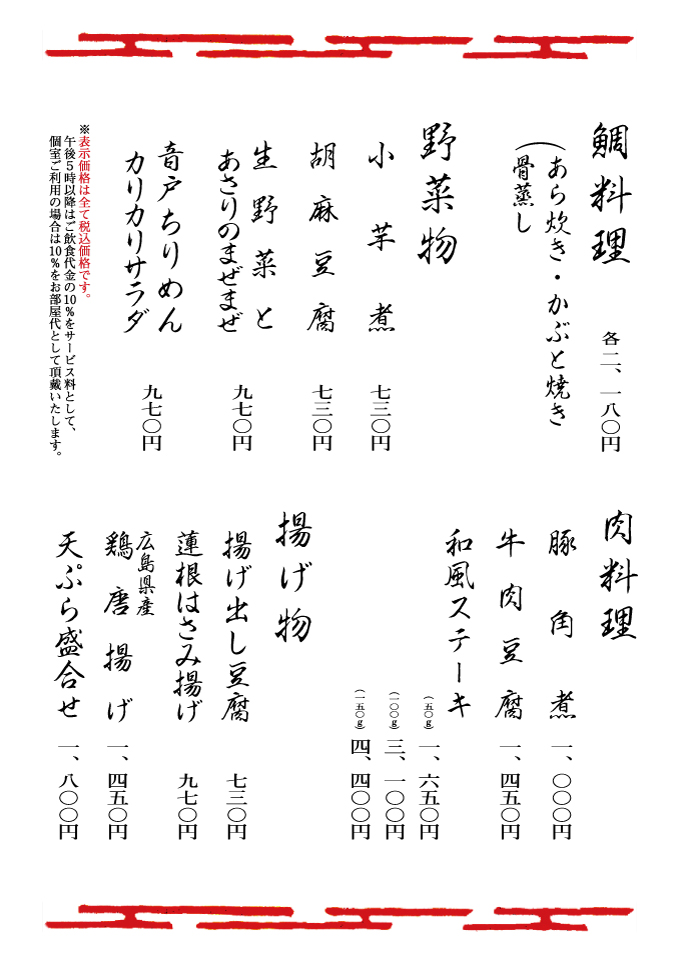 鯛料理
各二、一八〇円
（あら炊き・かぶと焼き
骨蒸し
野菜物
小芋煮
七三〇円
胡麻豆腐
七三〇円
生野菜と
あさりのまぜまぜ
九七〇円
音戸ちりめん
カリカリサラダ
九七〇円
※表示価格は全て税込価格です。
午後５時以降はご飲食代金の10％をサービス料として、
個室ご利用の場合は10％をお部屋代として頂戴いたします。
肉料理
豚角煮
一、〇〇〇円
牛肉豆腐
一、四五〇円
和風ステーキ
（五〇g）一、六五〇円
（一〇〇g）三、一〇〇円
（一五〇g）四、四〇〇円
揚げ物
揚げ出し豆腐
七三〇円
蓮根はさみ揚げ
九七〇円
広島県産
鶏唐揚げ
一、四五〇円
天ぷら盛合せ
一、八〇〇円